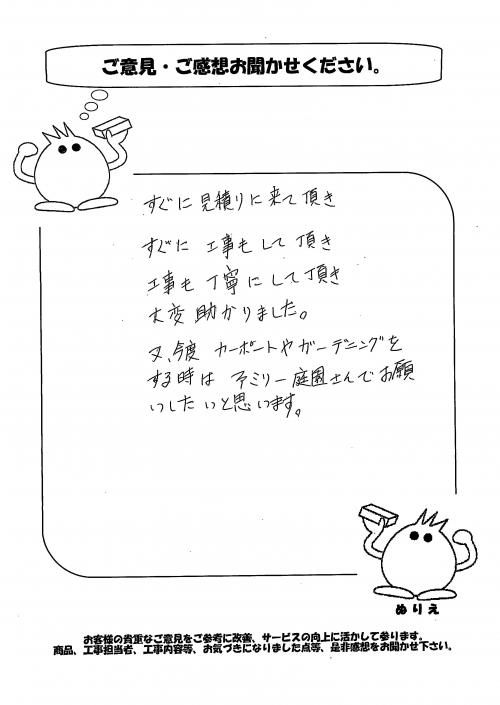 ご意見・ご感想お聞かせください。
すぐに見積りに来て頂き
すぐに工事もして頂き
工事も丁寧にして頂き
大変助かりました。
又、今度カーポートやガーデニングを
する時はファミリー庭園さんでお願
いしたいと思います。
ぬりえ
お客様の貴重なご意見をご参考に改善、サービスの向上に活かして参ります。
商品、工事担当者、工事内容等、お気づきになりました点等、是非感想をお聞かせ下さい。